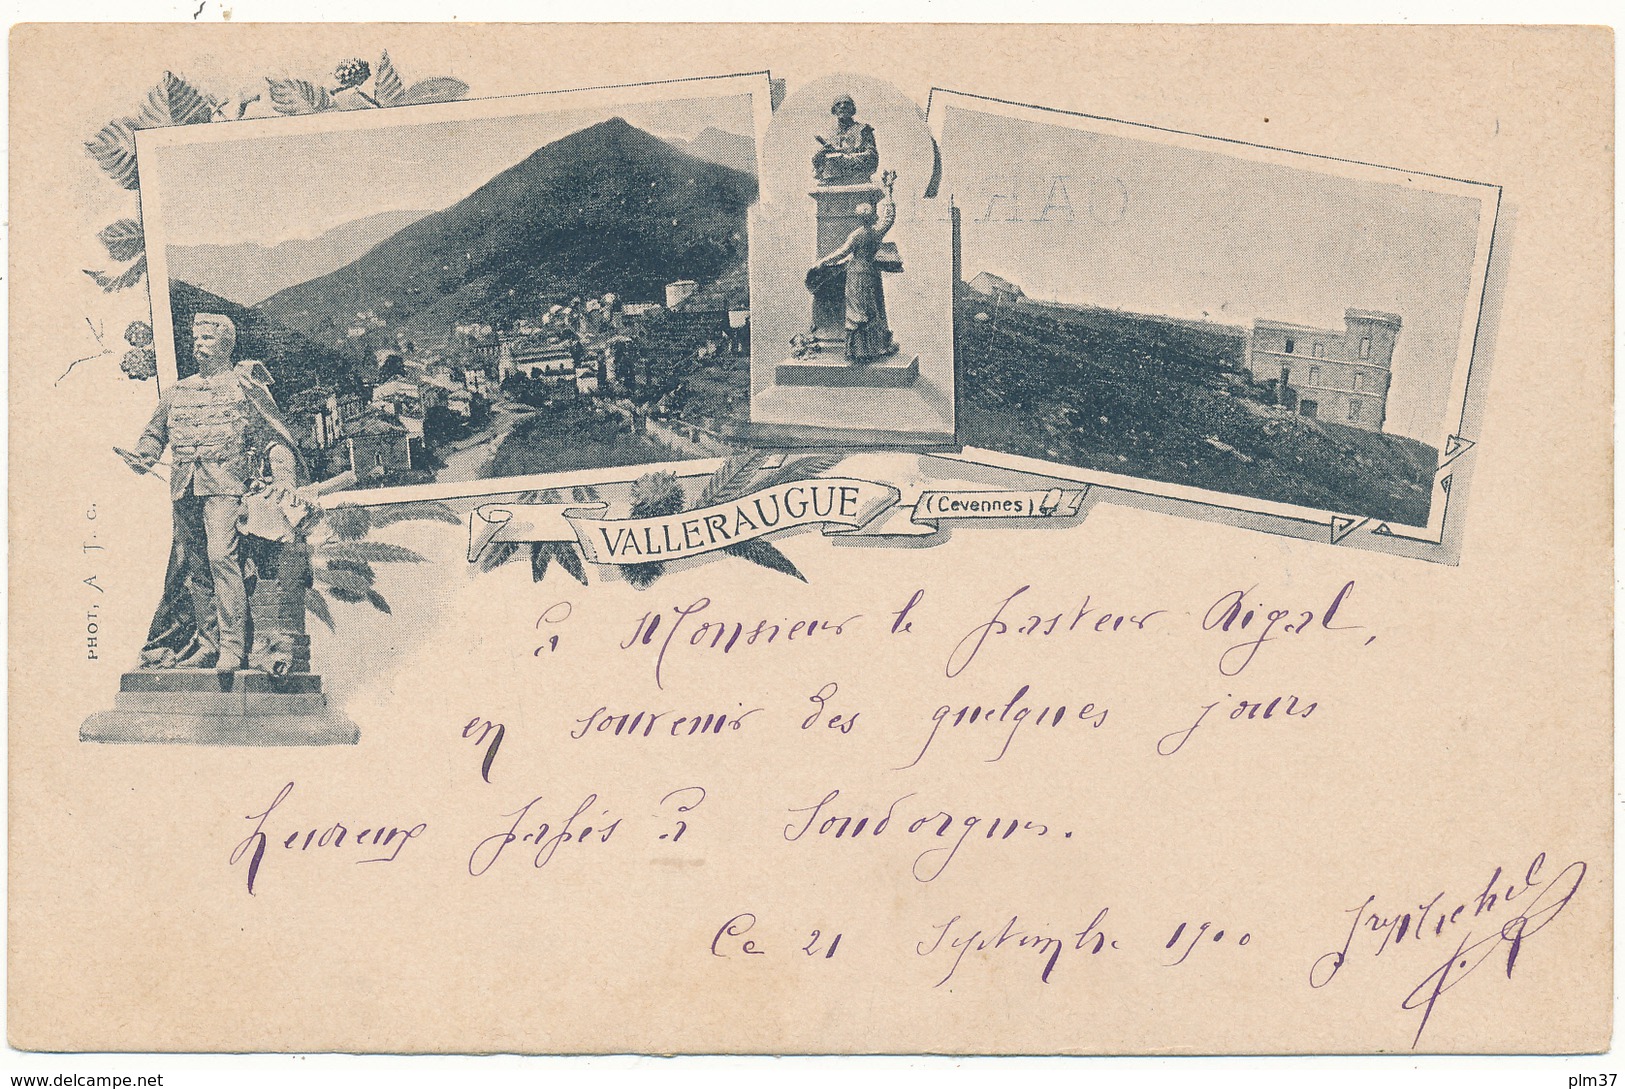 PHOT, A. J. C.
VALLERAUGUE
(Cevennes)
à Monsieur le pasteur Rigal,
en souvenir des quelques jours
heureux passés à Soudorgues.
Ce 21 Septembre 1900
www.delcampe.net
plm37